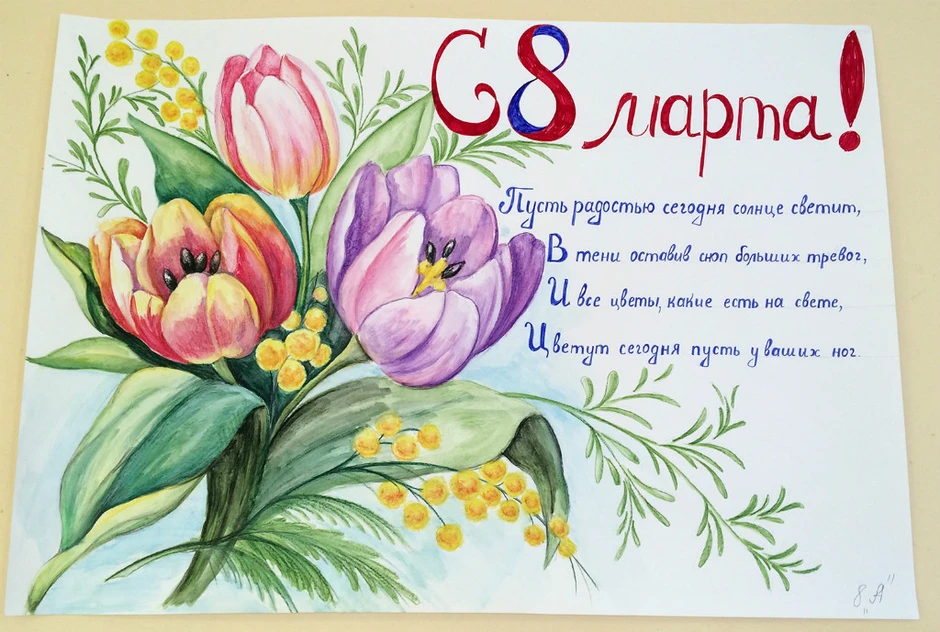 С 8 марта!
Пусть радостью сегодня солнце светит,
В тени оставив сноп больших тревог,
И все цветы, какие есть на свете,
Цветут сегодня пусть у ваших ног.
8 „А"